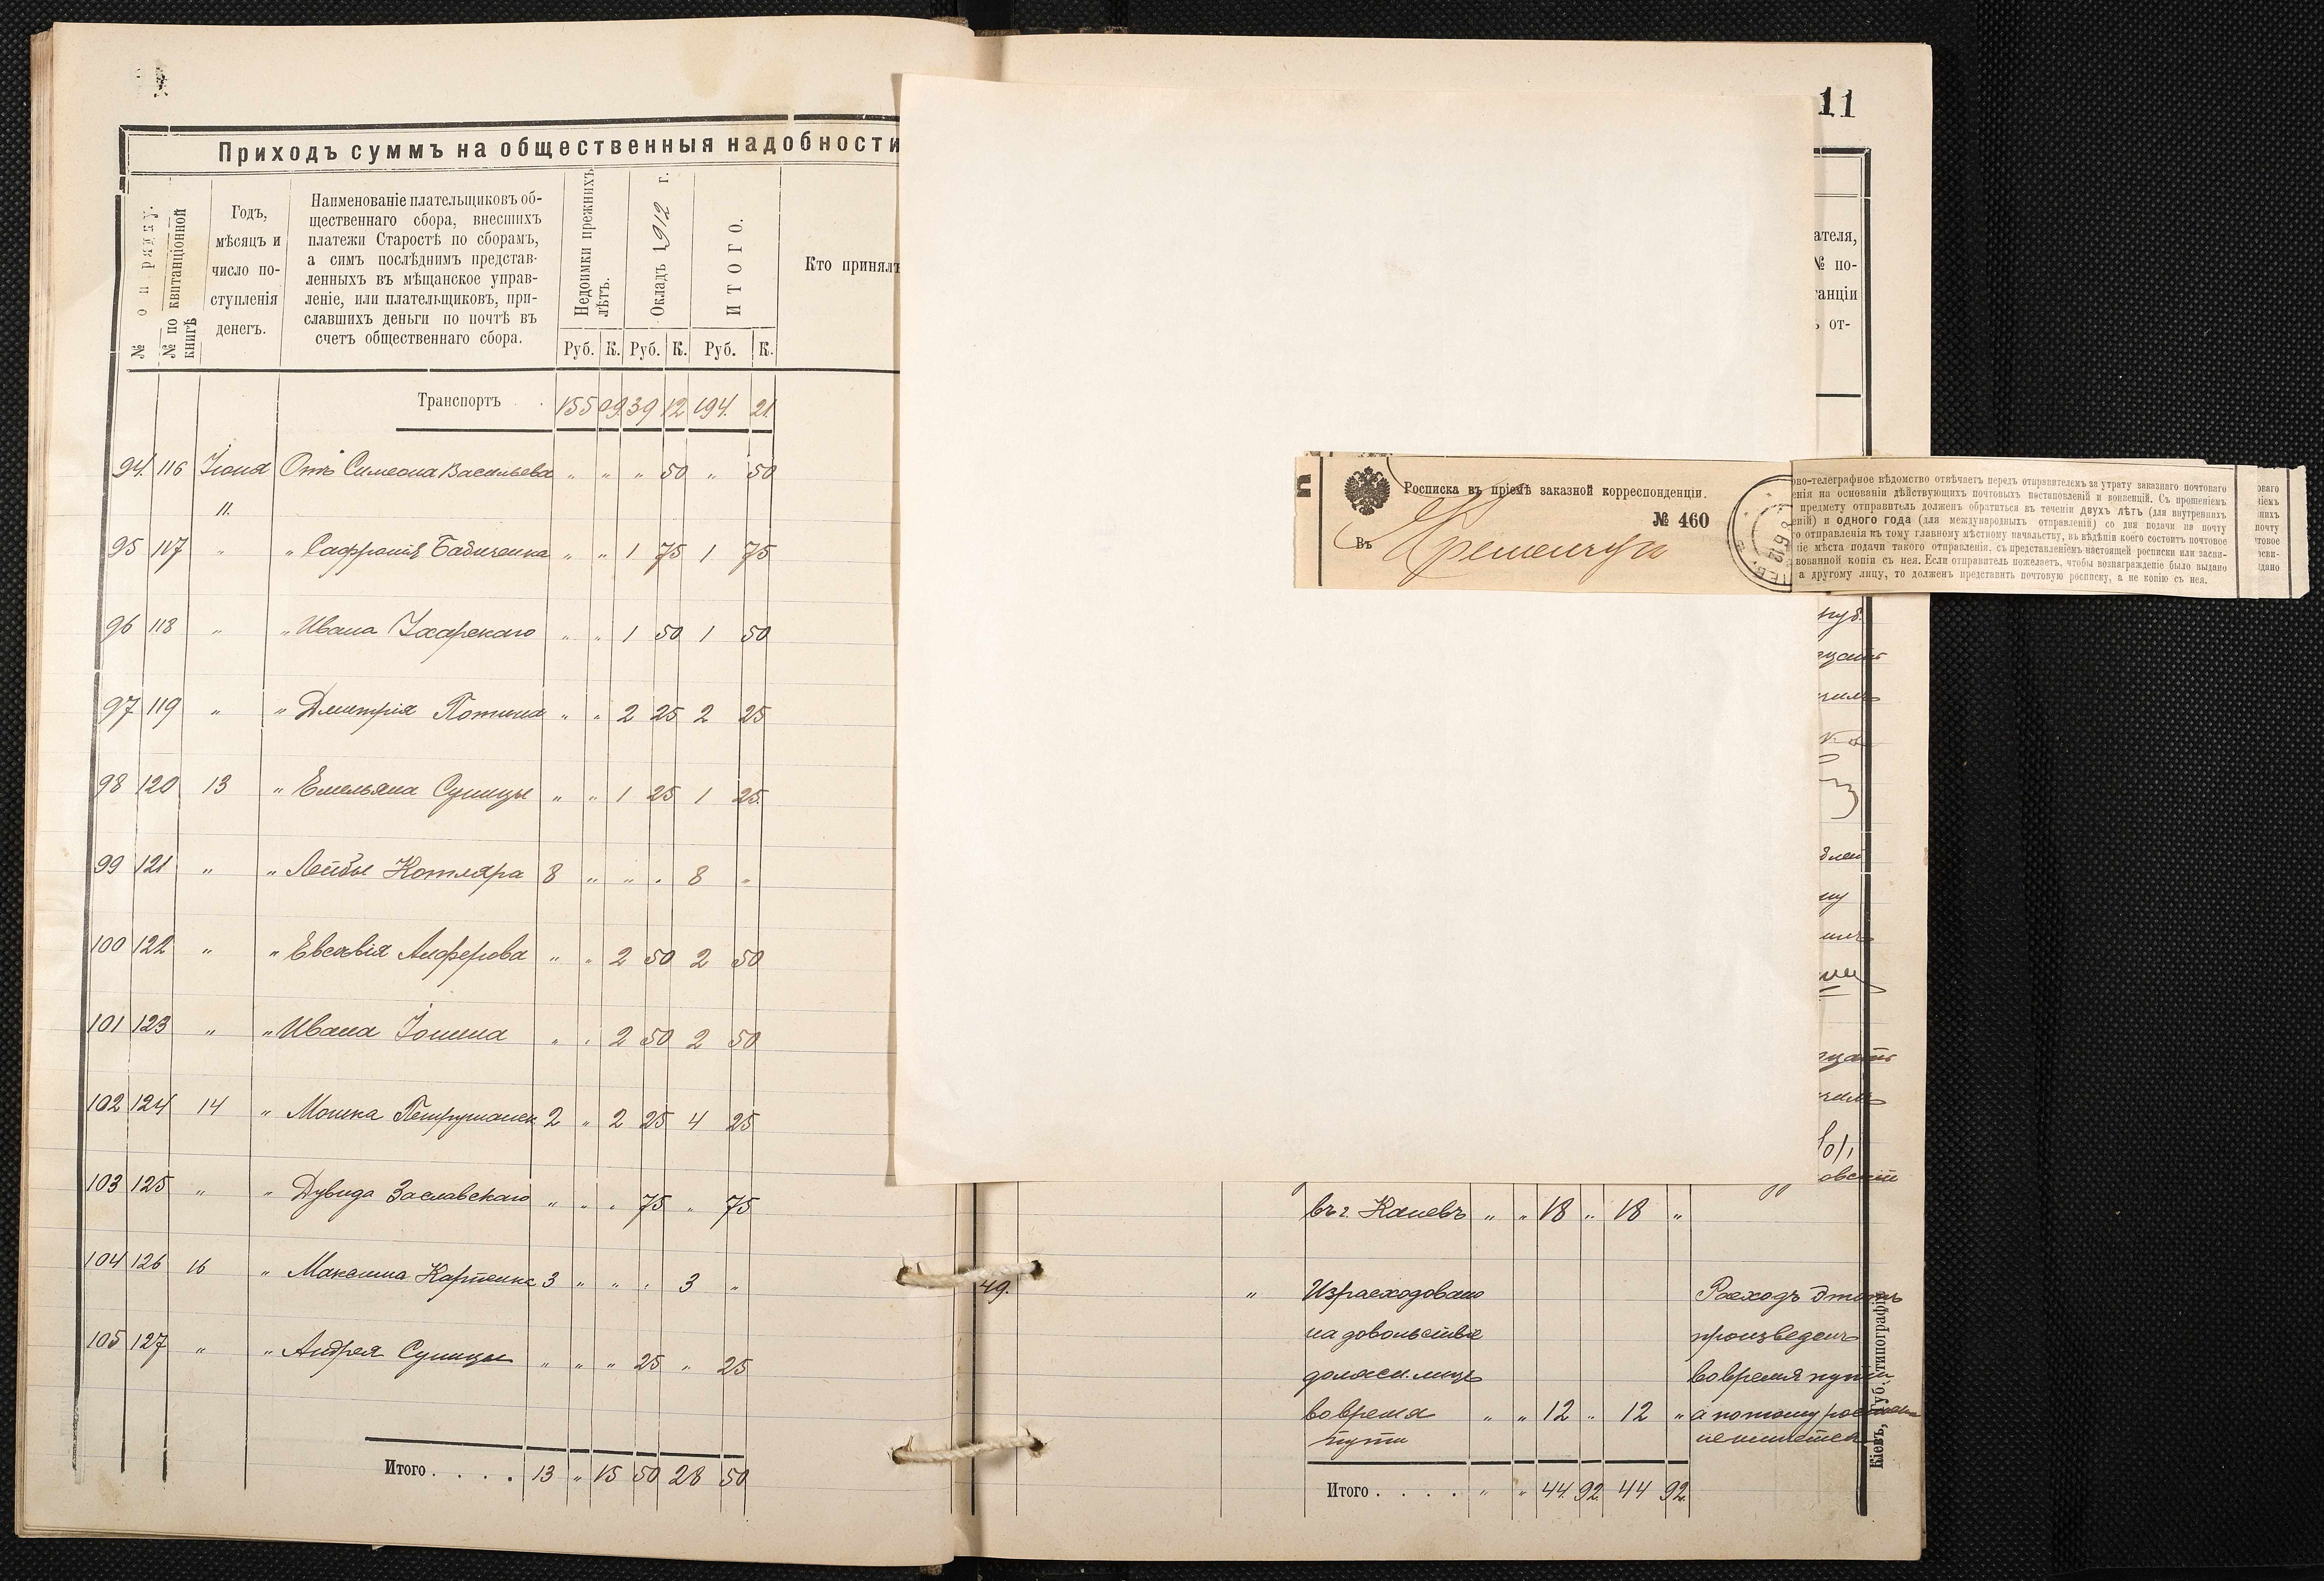 Приходъ суммъ на общественныя надобности
№ по ряду.
№ по квитанціонной книгѣ
Годъ,
мѣсяцъ и
число по-
ступленія
денегъ.
Наименованіе плательщиковъ об-
щественнаго сбора, внесшихъ
платежи Старостѣ по сборамъ,
а симъ послѣднимъ представ-
ленныхъ въ мѣщанское управ-
леніе, или плательщиковъ, при-
славшихъ деньги по почтѣ въ
счетъ общественнаго сбора.
Недоимки прежнихъ
лѣтъ.
Окладъ 1912 г.
ИТОГО.
Кто принялъ
Руб. К. Руб. К. Руб. К.
Транспортъ . . 155 09 39 12 194. 21.
94. 116 Іюня Отъ Симеона Васильева " " " 50 " 50
11.
95 117 " " Сафронія Бабиченка " " 1 75 1 75
96 118 " " Ивана " " 1 50 1 50
97 119 " " Дмитрія " " 2 25 2 25
98 120 13 " Емельяна Суницы " " 1 25 1 25.
99 121 " " Лейбы Котляра 8 " " " 8 "
100 122 " " Евсевія Алферова " " 2 50 2 50
101 123 " " Ивана " " 2 50 2 50
102 124 14 " Мошка 2 " 2 25 4 25
103 125 " " Дувида Заславскаго " " " 75 " 75
104 126 16 " Максима Карпенка 3 " " " 3 "
105 127 " " Андрея Суницы " " " 25 " 25
Итого . . . . 13 " 15 50 28 50
11
ателя,
№ по-
танціи
ъ от-
Росписка въ пріемѣ заказной корреспонденціи.
№ 460
Въ Кременчугъ
ово-телеграфное вѣдомство отвѣчаетъ передъ отправителемъ за утрату заказнаго почтоваго
енія на основаніи дѣйствующихъ почтовыхъ постановленій и конвенцій. Съ прошеніемъ
предмету отправитель долженъ обратиться въ теченіи двухъ лѣтъ (для внутреннихъ
еній) и одного года (для международныхъ отправленій) со дня подачи на почту
го отправленія къ тому главному мѣстному начальству, въ вѣдѣніи коего состоитъ почтовое
ніе мѣста подачи такого отправленія, съ представленіемъ настоящей росписки или засви-
вованной копіи съ нея. Если отправитель пожелаетъ, чтобы вознагражденіе было выдано
а другому лицу, то долженъ представить почтовую росписку, а не копію съ нея.
руб.
овскій
въ г. Каневъ " " 18 " 18 "
49. " Израсходовано Расходъ этотъ
на довольствіе произведенъ
должн. лицъ во время пути
во время " " 12 " 12 " а потому
пути не имѣется
Итого . . . . " " 44. 92. 44 92.
Кіевъ, Губ. типографія